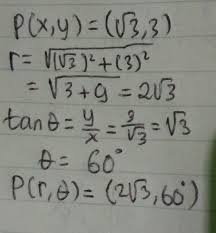 P(x,y)=(√3,3)
r=√(√3)²+(3)²
=√3+9=2√3
tanθ=y/x=3/√3=√3
θ=60°
P(r,θ)=(2√3,60°)